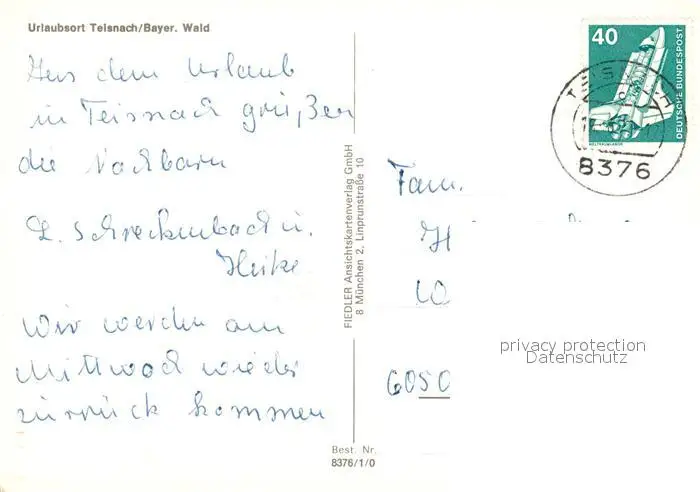 Urlaubsort Teisnach/Bayer. Wald
Aus dem Urlaub
in Teisnach grüßen
die Nachbarn
L. Schreckenbach u.
Heike
Wir werden am
Mittwoch wieder
zurück kommen
FIEDLER Ansichtskartenverlag GmbH
8 München 2, Linprunstraße 10
Best. Nr.
8376/1/0
40
DEUTSCHE BUNDESPOST
WELTRAUMLABOR
8376
Fam.
H
W
6050
privacy protection
Datenschutz